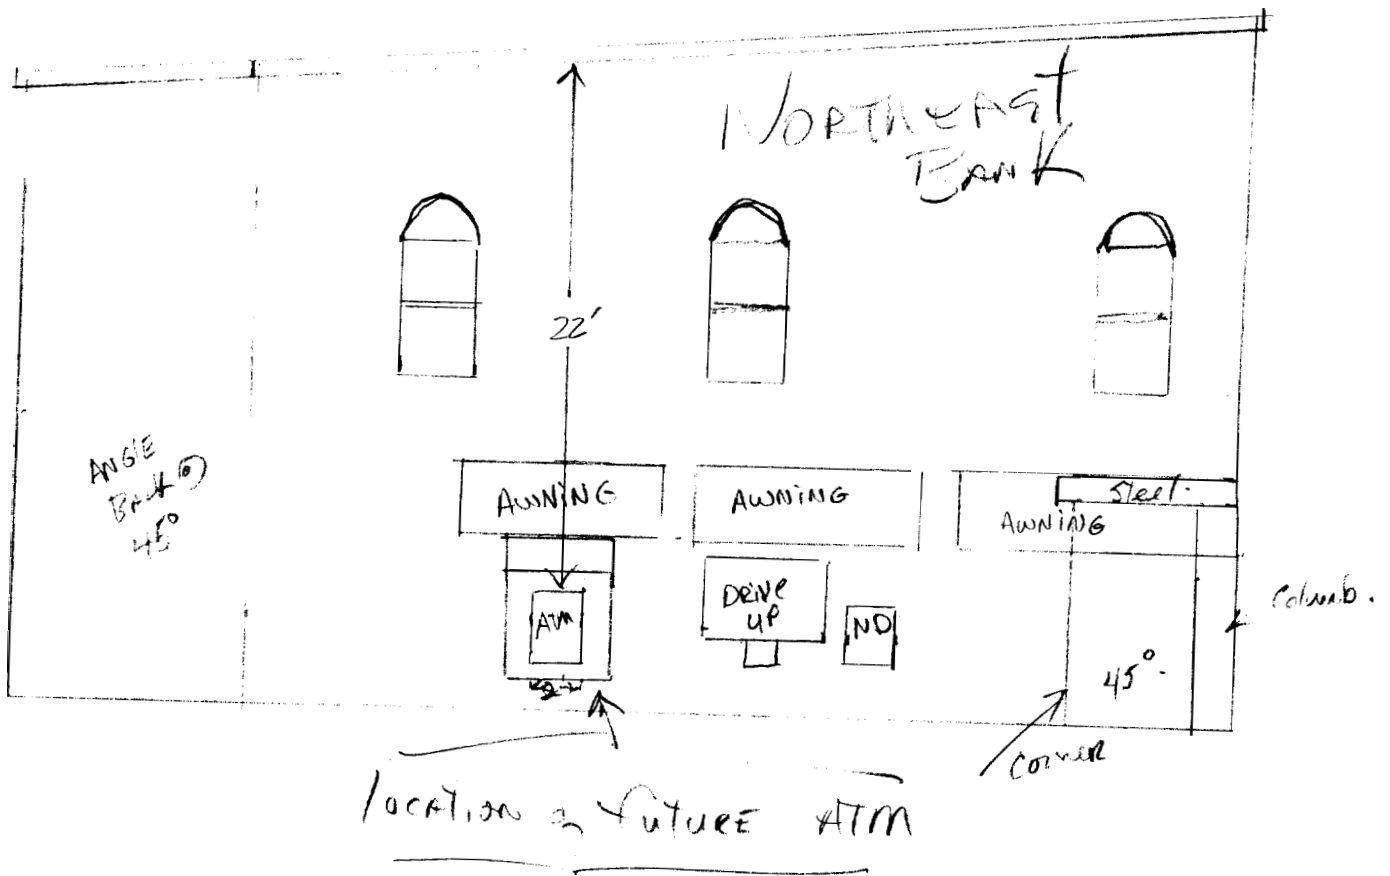 NORTHEAST
BANK
22'
ANGLE
Back
45°
AWNING
AWNING
Steel
AWNING
ATM
DRIVE
UP
ND
45°
Columb.
Corner
LOCATION OF FUTURE ATM